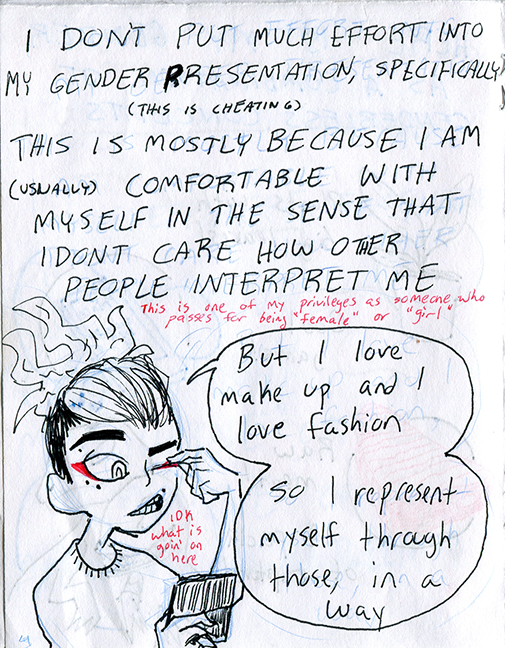 I DON'T PUT MUCH EFFORT INTO
MY GENDER PRESENTATION, SPECIFICALLY
(THIS IS CHEATING)
THIS IS MOSTLY BECAUSE I AM
(USUALLY) COMFORTABLE WITH
MYSELF IN THE SENSE THAT
I DONT CARE HOW OTHER
PEOPLE INTERPRET ME
This is one of my privileges as someone who
passes for being "female" or "girl"
But I love
make up and I
love fashion
SO I represent
myself through
those, in a
way
IDK
what is
goin' on
here